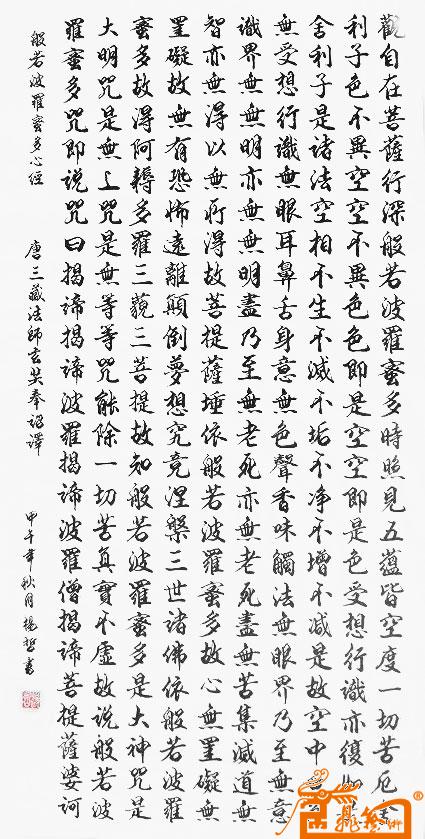 觀自在菩薩行深般若波羅蜜多時照見五蘊皆空度一切苦厄舍
利子色不異空空不異色色即是空空即是色受想行識亦復如
舍利子是諸法空相不生不滅不垢不净不增不減是故空中
無受想行識無眼耳鼻舌身意無色聲香味觸法無眼界乃至無意
識界無無明亦無無明盡乃至無老死亦無老死盡無苦集滅道無
智亦無得以無所得故菩提薩埵依般若波羅蜜多故心無罣礙無
罣礙故無有恐怖遠離顛倒夢想究竟涅槃三世諸佛依般若波羅
蜜多故得阿耨多羅三藐三菩提故知般若波羅蜜多是大神咒是
大明咒是無上咒是無等等咒能除一切苦真實不虛故說般若波
羅蜜多咒即說咒曰揭諦揭諦波羅揭諦波羅僧揭諦菩提薩婆訶
般若波羅蜜多心經 唐三藏法師玄奘奉詔譯 甲午年秋月楊哲書